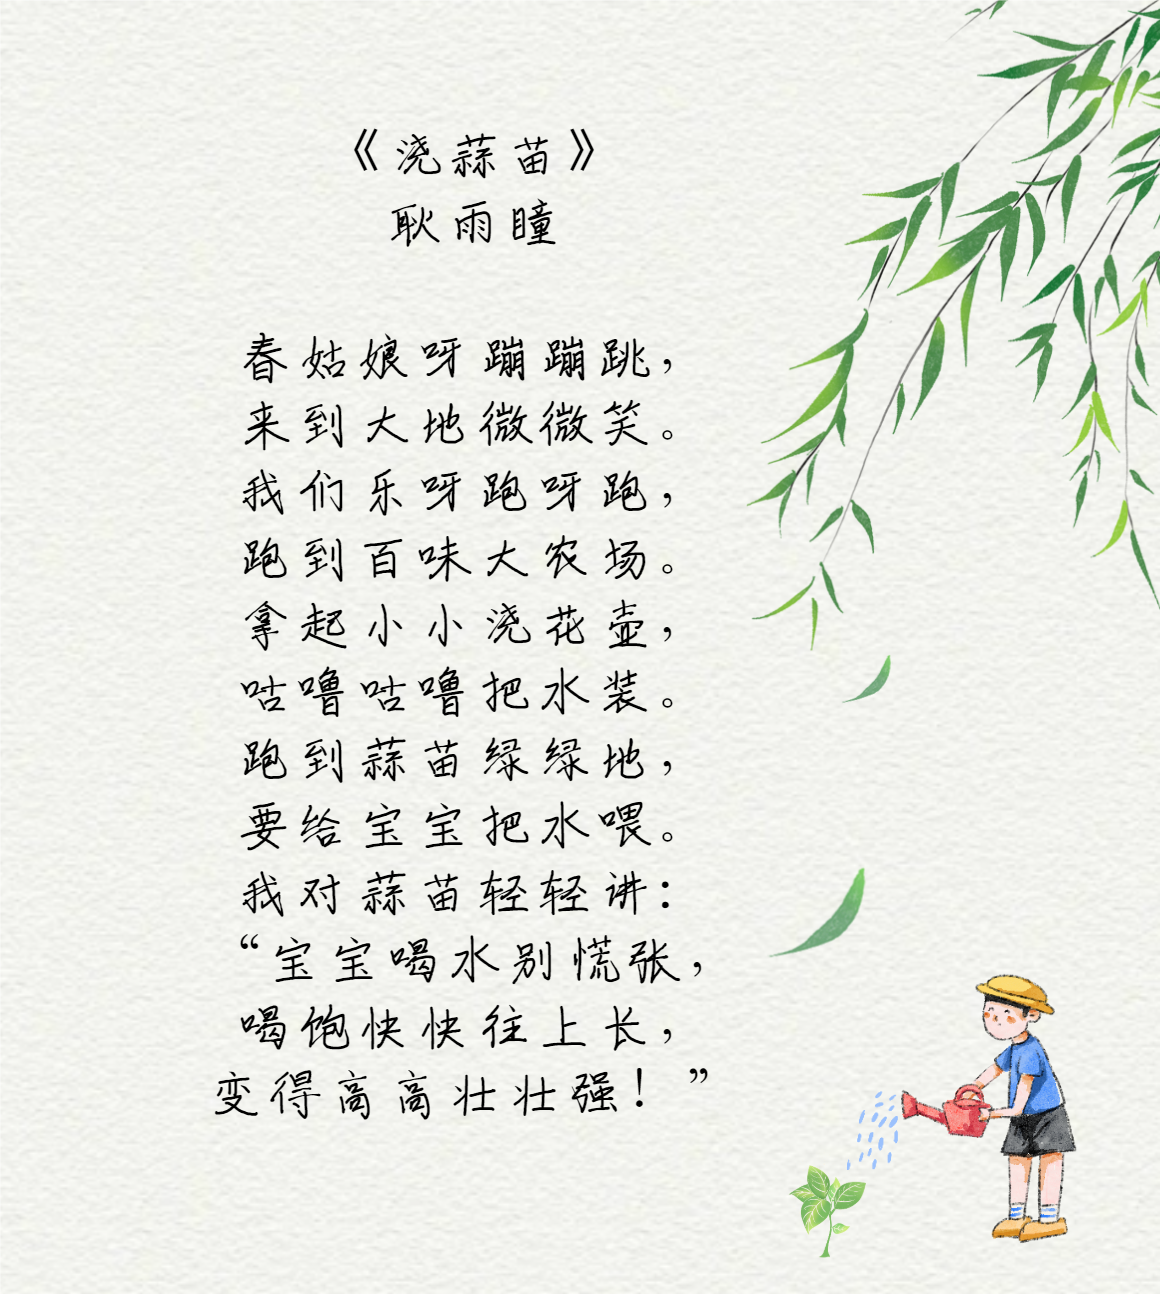 《浇蒜苗》
耿雨瞳
春姑娘呀蹦蹦跳，
来到大地微微笑。
我们乐呀跑呀跑，
跑到百味大农场。
拿起小小浇花壶，
咕噜咕噜把水装。
跑到蒜苗绿绿地，
要给宝宝把水喂。
我对蒜苗轻轻讲：
“宝宝喝水别慌张，
喝饱快快往上长，
变得高高壮壮强！”